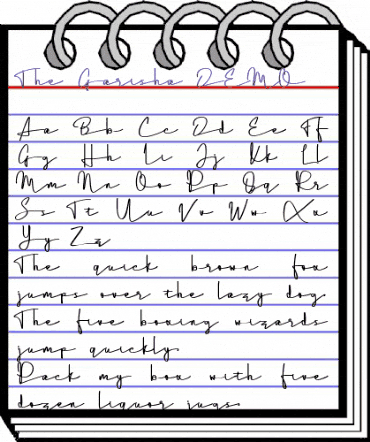 The Garisha DEMO
Aa Bb Cc Dd Ee Ff
Gg Hh Ii Jj Kk Ll
Mm Nn Oo Pp Qq Rr
Ss Tt Uu Vv Ww Xx
Yy Zz
The quick brown fox
jumps over the lazy dog.
The five boxing wizards
jump quickly.
Pack my box with five
dozen liquor jugs.